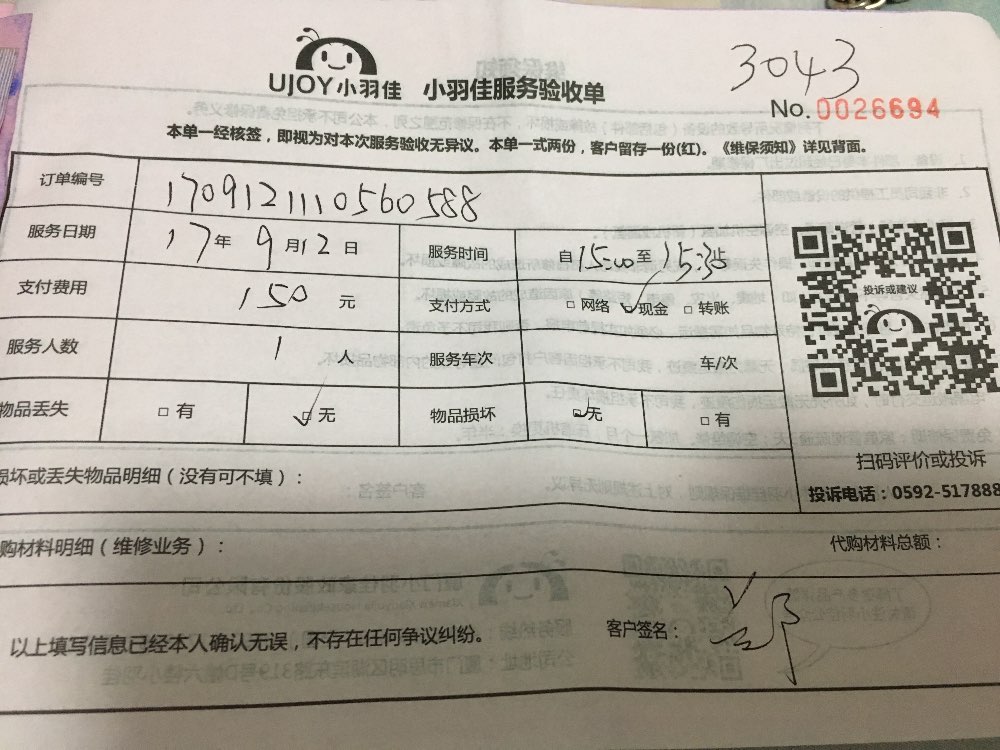 3043
UJOY小羽佳 小羽佳服务验收单
No.0026694
本单一经核签，即视为对本次服务验收无异议。本单一式两份，客户留存一份(红)。《维保须知》详见背面。
订单编号 1709121110560588
服务日期 17年9月12日 服务时间 自15:00至15:30止
支付费用 150元 支付方式 □网络 ☑现金 □转账
投诉或建议
服务人数 1人 服务车次 车/次
物品丢失 □有 ☑无 物品损坏 ☑无 □有
扫码评价或投诉
损坏或丢失物品明细（没有可不填）：
投诉电话：0592-517888
购材料明细（维修业务）：
代购材料总额：
以上填写信息已经本人确认无误，不存在任何争议纠纷。
客户签名：